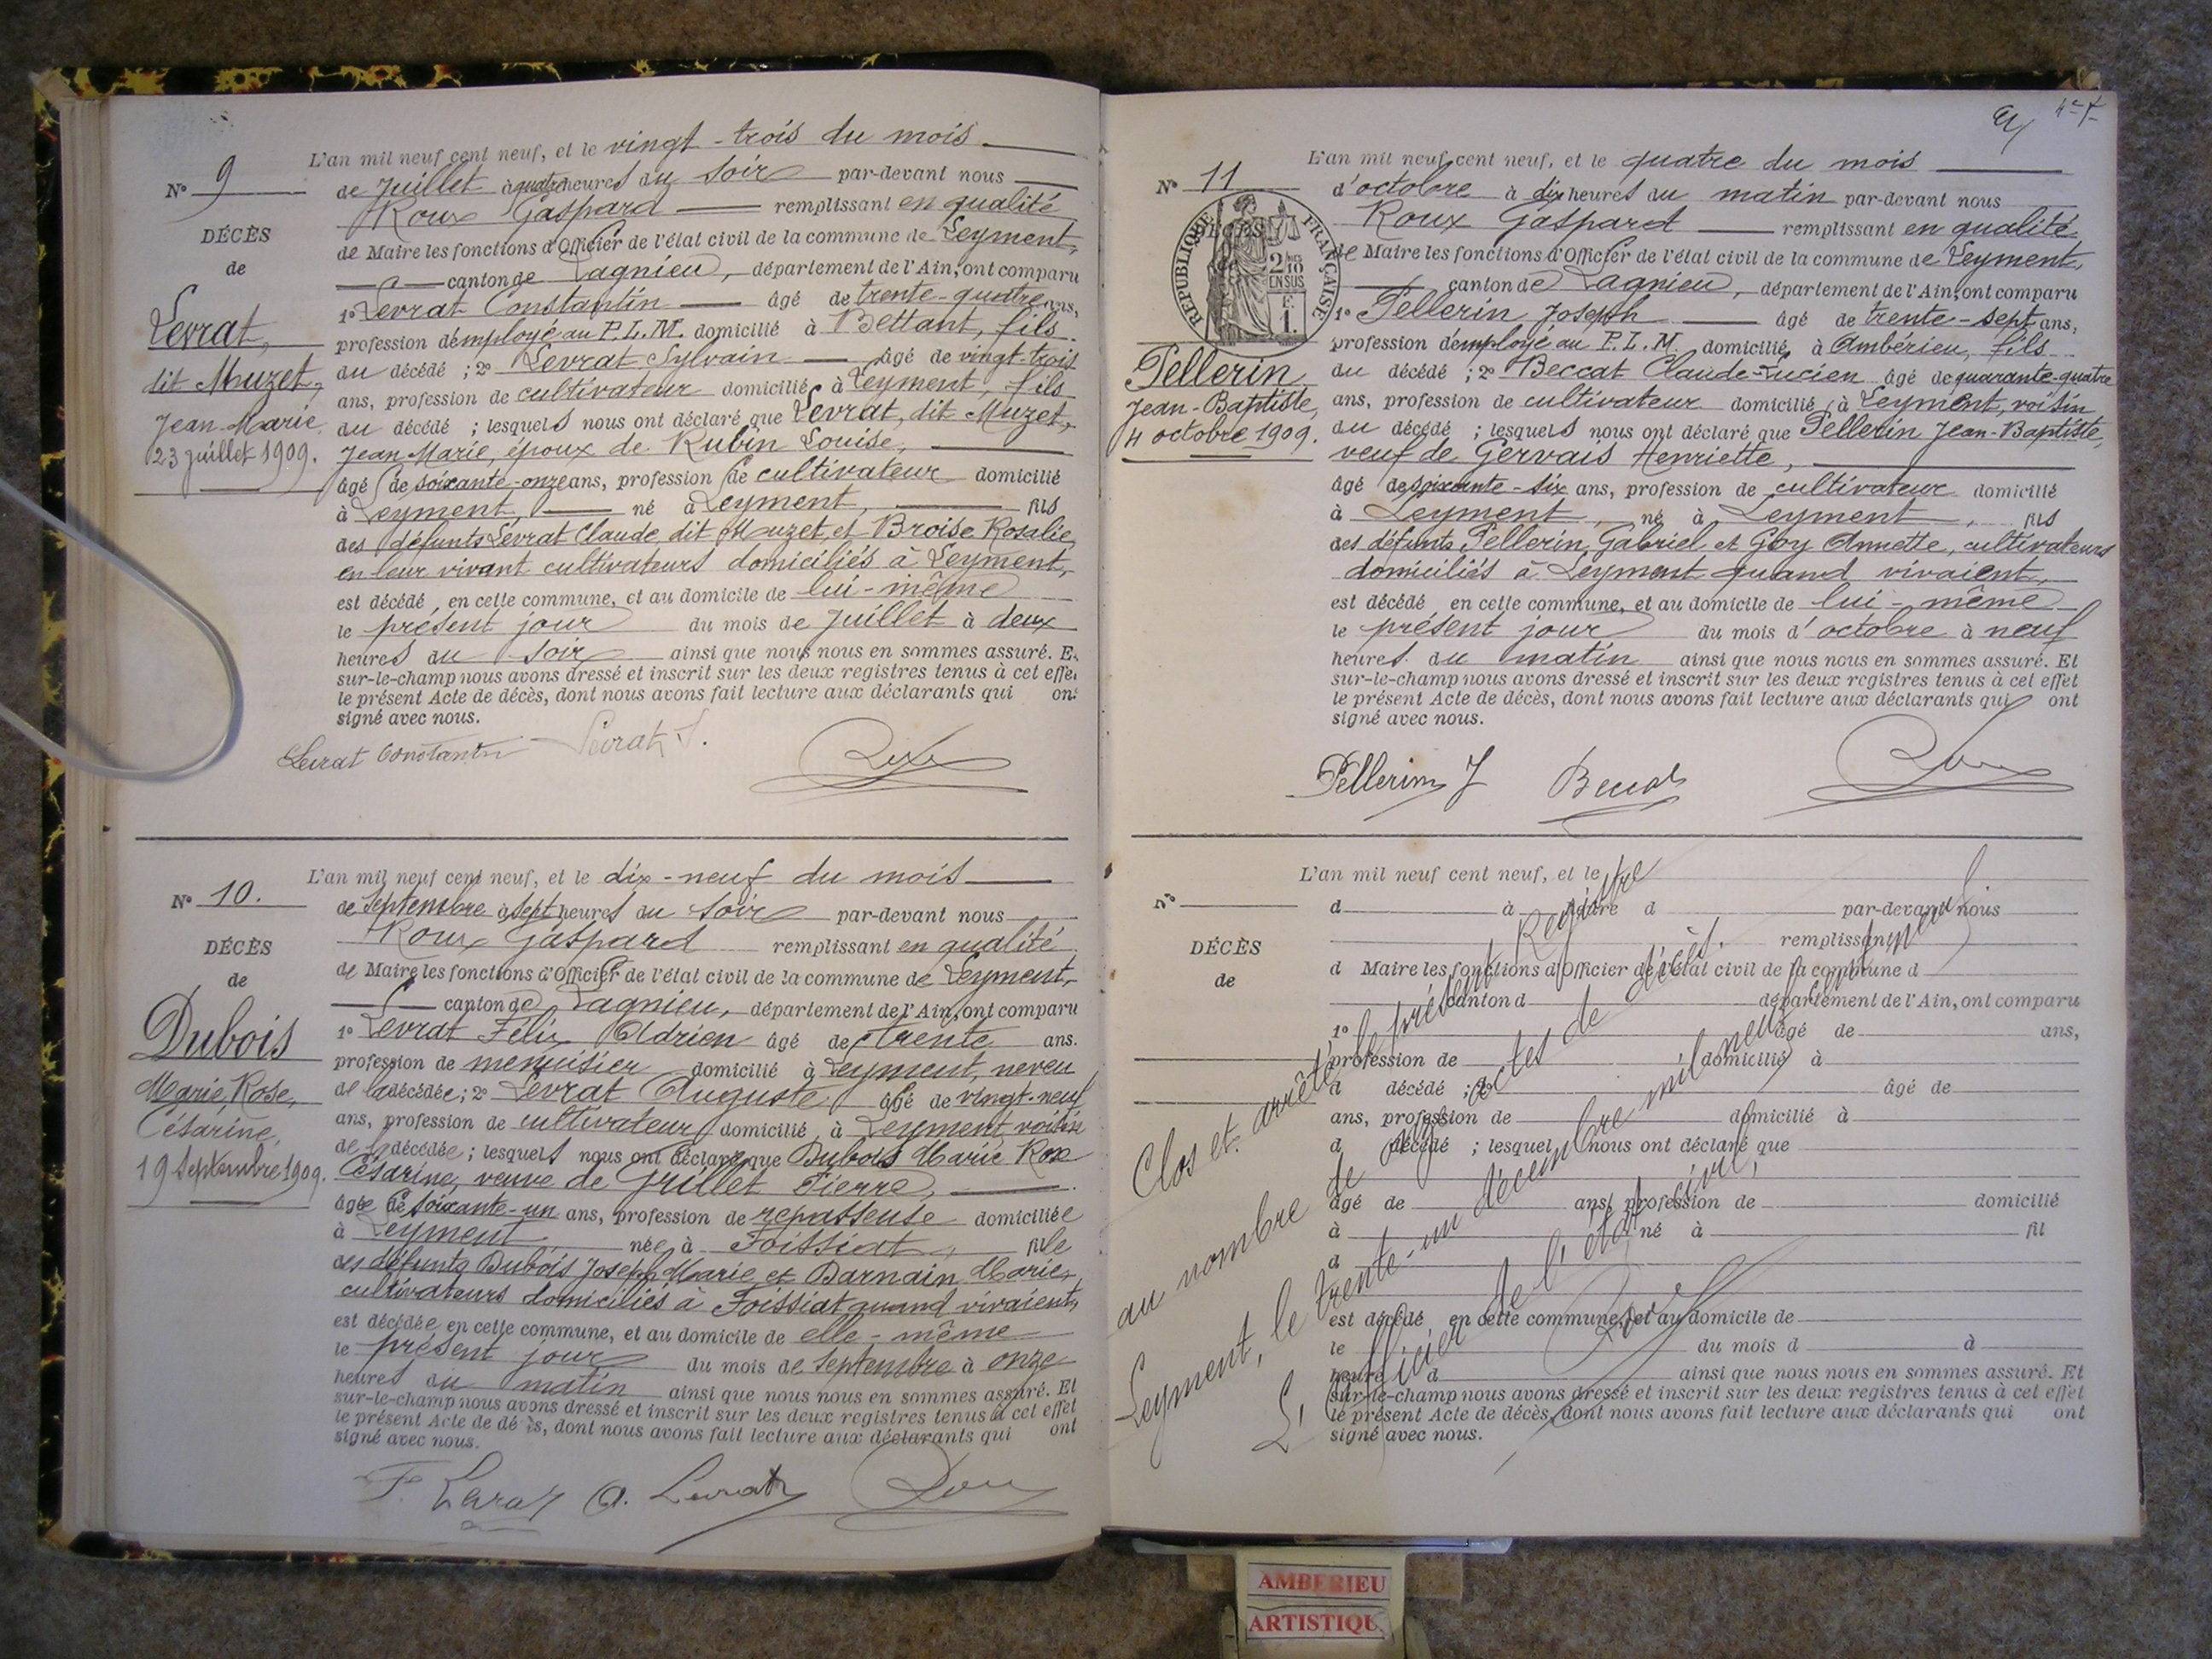 N° 9
DÉCÈS
de
Levrat,
dit Muzet,
Jean-Marie
23 juillet 1909.
L'an mil neuf cent neuf, et le vingt-trois du mois
de Juillet à quatre heures du soir par-devant nous
Roux Gaspard remplissant en qualité
de Maire les fonctions d'Officier de l'état civil de la commune de Leyment,
canton de Lagnieu, département de l'Ain, ont comparu
1° Levrat Constantin âgé de trente-quatre ans,
profession d'employé au P.L.M. domicilié à Bettant, fils
du décédé ; 2° Levrat Sylvain âgé de vingt-trois
ans, profession de cultivateur domicilié à Leyment, fils
du décédé ; lesquels nous ont déclaré que Levrat, dit Muzet,
Jean Marie, époux de Rubin Louise,
âgé de soixante-onze ans, profession de cultivateur domicilié
à Leyment, né à Leyment, fils
des défunts Levrat Claude dit Muzet et Broise Rosalie
en leur vivant cultivateurs domiciliés à Leyment,
est décédé, en cette commune, et au domicile de lui-même
le présent jour du mois de Juillet à deux
heures du soir ainsi que nous nous en sommes assuré. E
sur-le-champ nous avons dressé et inscrit sur les deux registres tenus à cet effe
le présent Acte de décès, dont nous avons fait lecture aux déclarants qui ont
signé avec nous.
Levrat Constantin Levrat S.
N° 10.
DÉCÈS
de
Dubois
Marie Rose,
Césarine,
19 Septembre 1909.
L'an mil neuf cent neuf, et le dix-neuf du mois
de Septembre à sept heures du soir par-devant nous
Roux Gaspard remplissant en qualité
de Maire les fonctions d'Officier de l'état civil de la commune de Leyment,
canton de Lagnieu, département de l'Ain, ont comparu
1° Levrat Félix Adrien âgé de trente ans.
profession de menuisier domicilié à Leyment, neveu
de la décédée ; 2° Levrat Auguste âgé de vingt-neuf
ans, profession de cultivateur domicilié à Leyment voisin
de la décédée ; lesquels nous ont déclaré que Dubois Marie Rose
Césarine, veuve de Grillet Pierre,
âgée de soixante-un ans, profession de repasseuse domiciliée
à Leyment née à Foissiat, fille
des défunts Dubois Joseph Marie et Darnain Marie,
cultivateurs domiciliés à Foissiat quand vivaient,
est décédée, en cette commune, et au domicile de elle-même
le présent jour du mois de Septembre à onze
heures du matin ainsi que nous nous en sommes assuré. Et
sur-le-champ nous avons dressé et inscrit sur les deux registres tenus à cet effet
le présent Acte de décès, dont nous avons fait lecture aux déclarants qui ont
signé avec nous.
F. Levrat A. Levrat Roux
N° 11
RÉPUBLIQUE FRANÇAISE
2/10
EN SUS
F.
1.
Pellerin
Jean-Baptiste,
4 octobre 1909.
L'an mil neuf cent neuf, et le quatre du mois
d'octobre à dix heures du matin par-devant nous
Roux Gaspard remplissant en qualité
de Maire les fonctions d'Officier de l'état civil de la commune de Leyment,
canton de Lagnieu, département de l'Ain, ont comparu
1° Pellerin Joseph âgé de trente-sept ans,
profession d'employé au P.L.M. domicilié à Ambérieu, fils
du décédé ; 2° Beccat Claude-Lucien âgé de quarante-quatre
ans, profession de cultivateur domicilié à Leyment, voisin
du décédé ; lesquels nous ont déclaré que Pellerin Jean-Baptiste,
veuf de Gervais Henriette,
âgé de soixante-six ans, profession de cultivateur domicilié
à Leyment, né à Leyment, fils
des défunts Pellerin Gabriel et Goy Annette, cultivateurs
domiciliés à Leyment quand vivaient,
est décédé en cette commune, et au domicile de lui-même
le présent jour du mois d'octobre à neuf
heures du matin ainsi que nous nous en sommes assuré. Et
sur-le-champ nous avons dressé et inscrit sur les deux registres tenus à cet effet
le présent Acte de décès, dont nous avons fait lecture aux déclarants qui ont
signé avec nous.
Pellerin J Beccat Roux
N°
DÉCÈS
de
L'an mil neuf cent neuf, et le
d à heure d par-devant nous
remplissant
d Maire les fonctions d'Officier de l'état civil de la commune d
canton d département de l'Ain, ont comparu
1° âgé de ans,
profession de domicilié à
d décédé ; 2° âgé de
ans, profession de domicilié à
d décédé ; lesquel nous ont déclaré que
âgé de ans, profession de domicilié
à né à fil
d
est décédé, en cette commune, et au domicile de
le du mois d à
heure d ainsi que nous nous en sommes assuré. Et
sur-le-champ nous avons dressé et inscrit sur les deux registres tenus à cet effet
le présent Acte de décès, dont nous avons fait lecture aux déclarants qui ont
signé avec nous.
Clos et arrêté le présent Registre
au nombre de onze actes de décès.
Leyment, le trente-un décembre mil neuf cent neuf
L'Officier de l'état civil,
Roux
AMBERIEU
ARTISTIQU